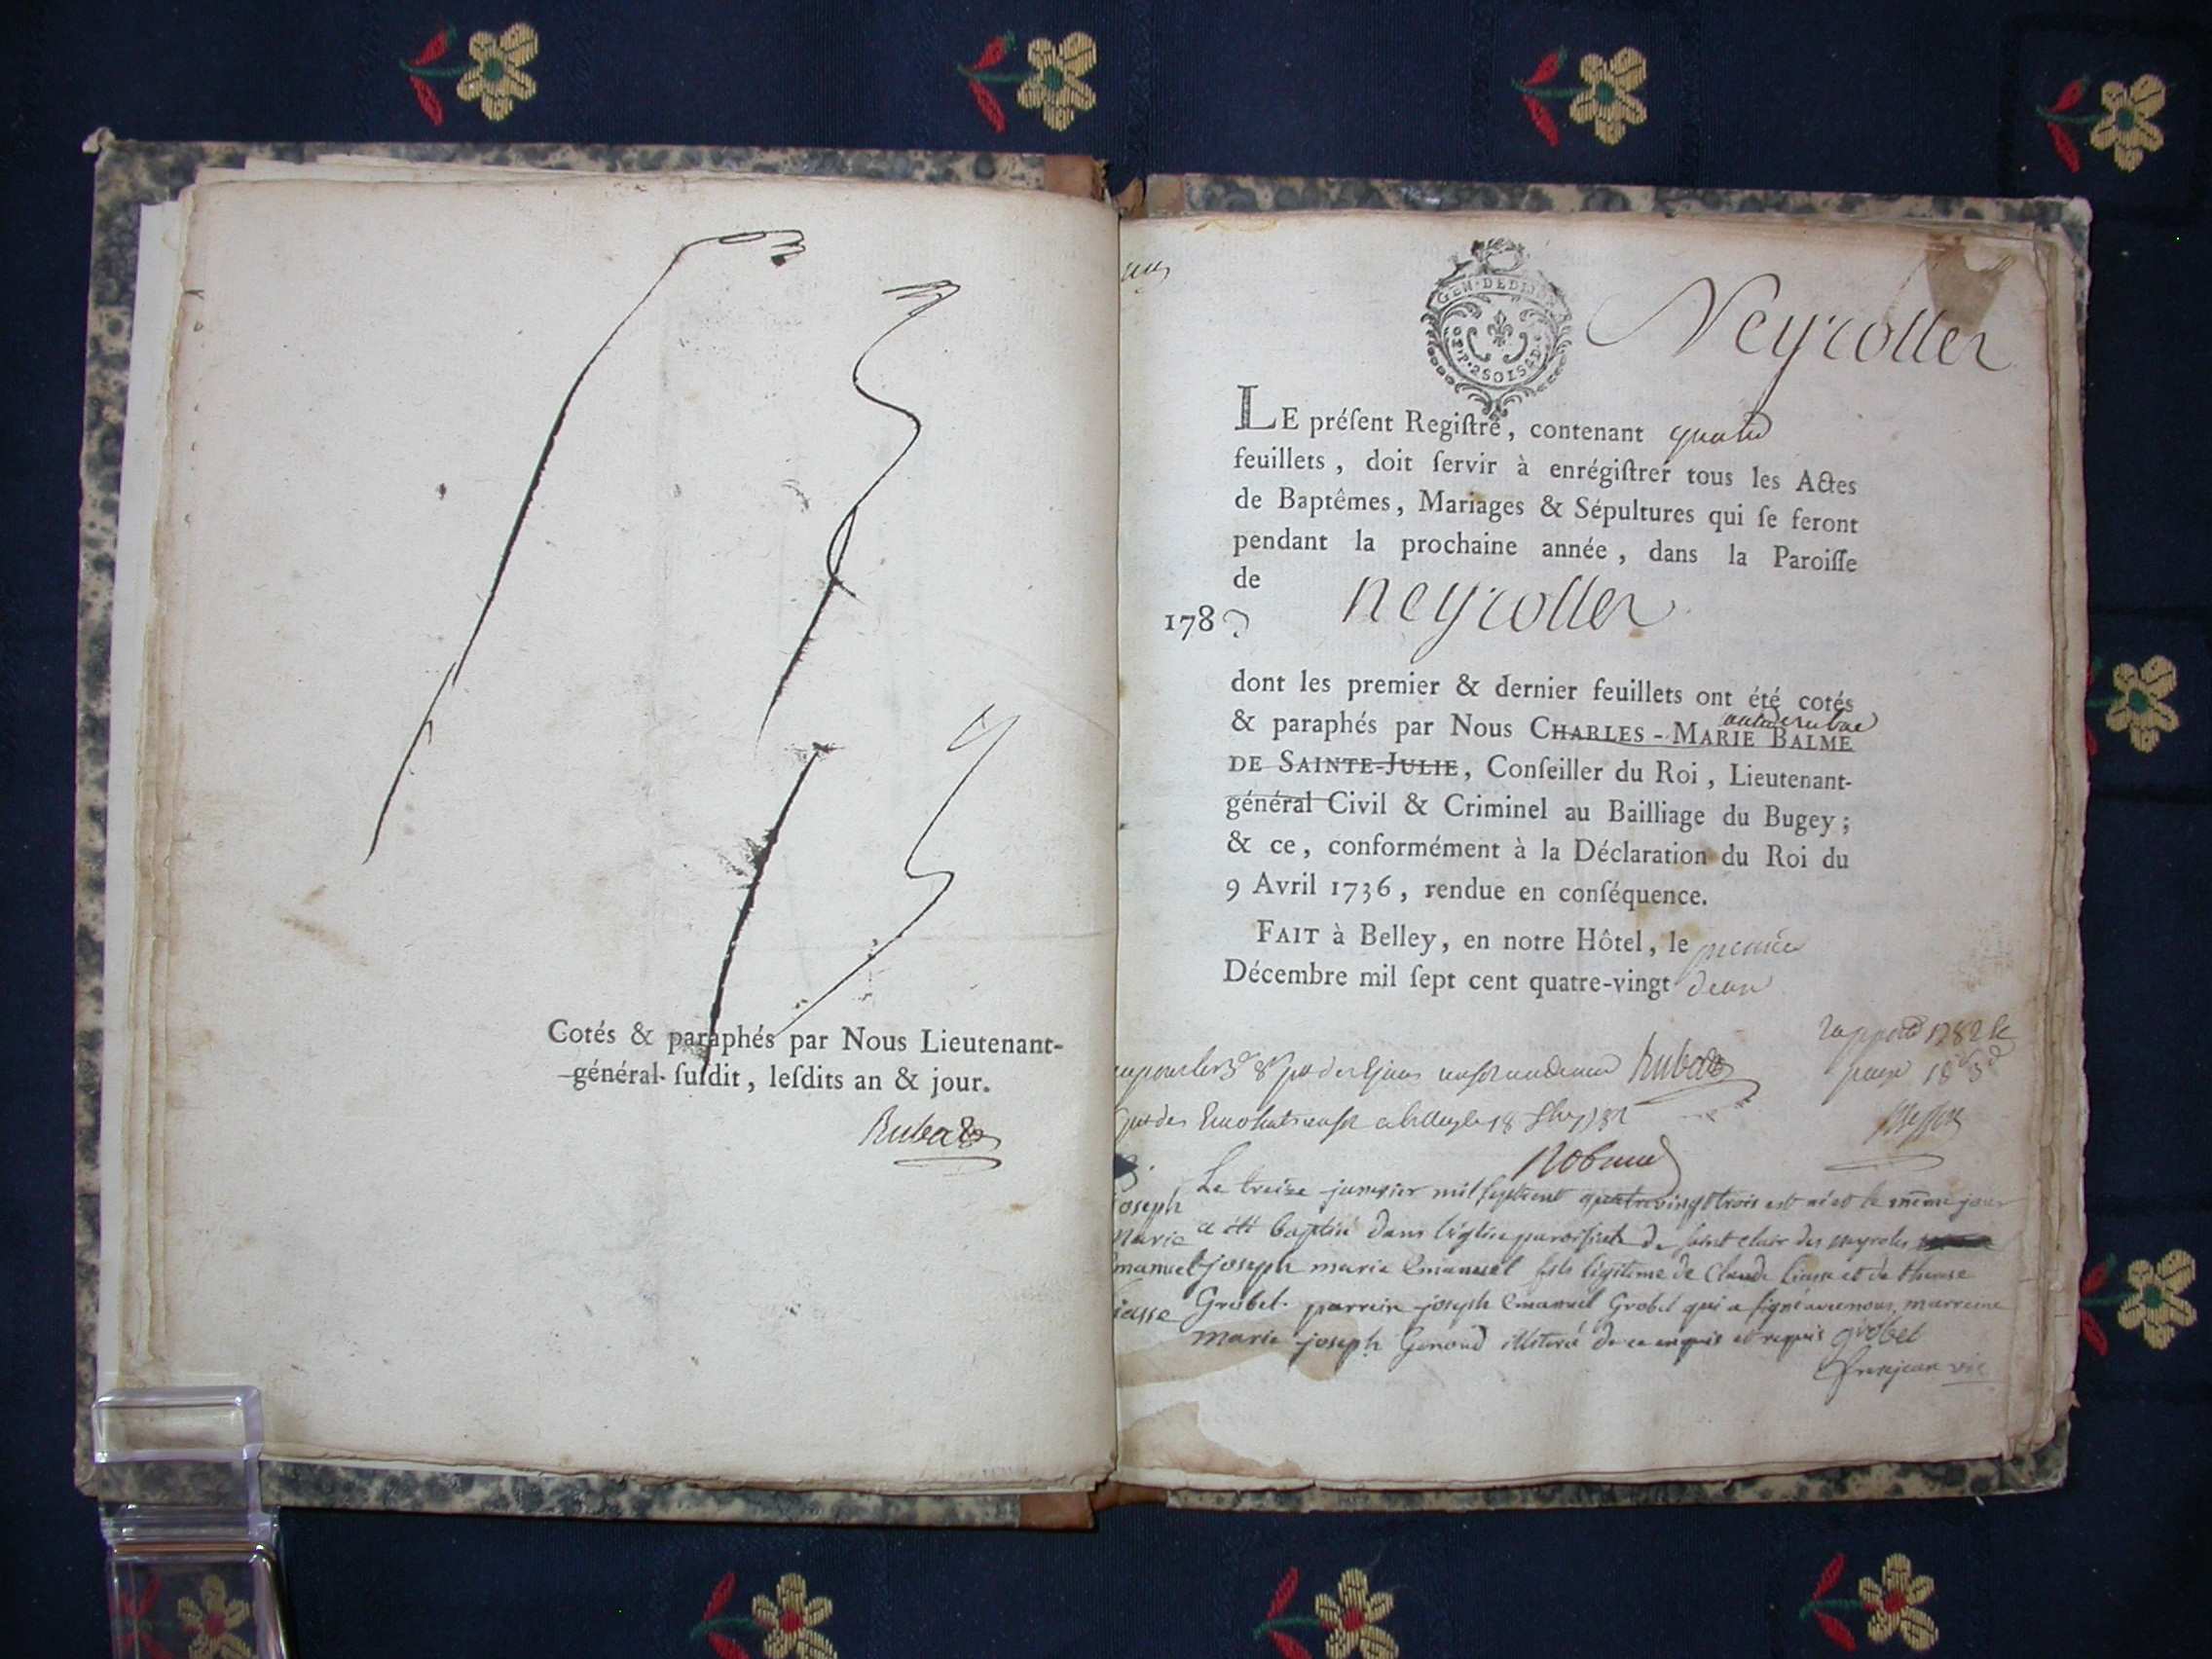 Cotés & paraphés par Nous Lieutenant-
général ſuſdit, leſdits an & jour.
GEN. DE DIJON
2 SOLS
Neyrolles
LE préſent Regiſtre, contenant quatre
feuillets, doit ſervir à enrégiſtrer tous les Actes
de Baptêmes, Mariages & Sépultures qui ſe feront
pendant la prochaine année, dans la Paroiſſe
de neyrolles
1783
dont les premier & dernier feuillets ont été cotés
& paraphés par Nous CHARLES-MARIE BALME
DE SAINTE-JULIE, Conſeiller du Roi, Lieutenant-
général Civil & Criminel au Bailliage du Bugey;
& ce, conformément à la Déclaration du Roi du
9 Avril 1736, rendue en conſéquence.
FAIT à Belley, en notre Hôtel, le premier
Décembre mil ſept cent quatre-vingt deux
joseph
marie
emanuel
Le treize janvier mil sept cent quatrevingt trois est né et le même jour
a été baptisé dans l'église paroissiale de saint clair des neyroles
joseph marie emanuel fils légitime de Claude et de therese
Grobel. parrein joseph emanuel Grobel qui a signé avec nous, marreine
marie joseph Genoud illiteré de ce enquis et requis grobel